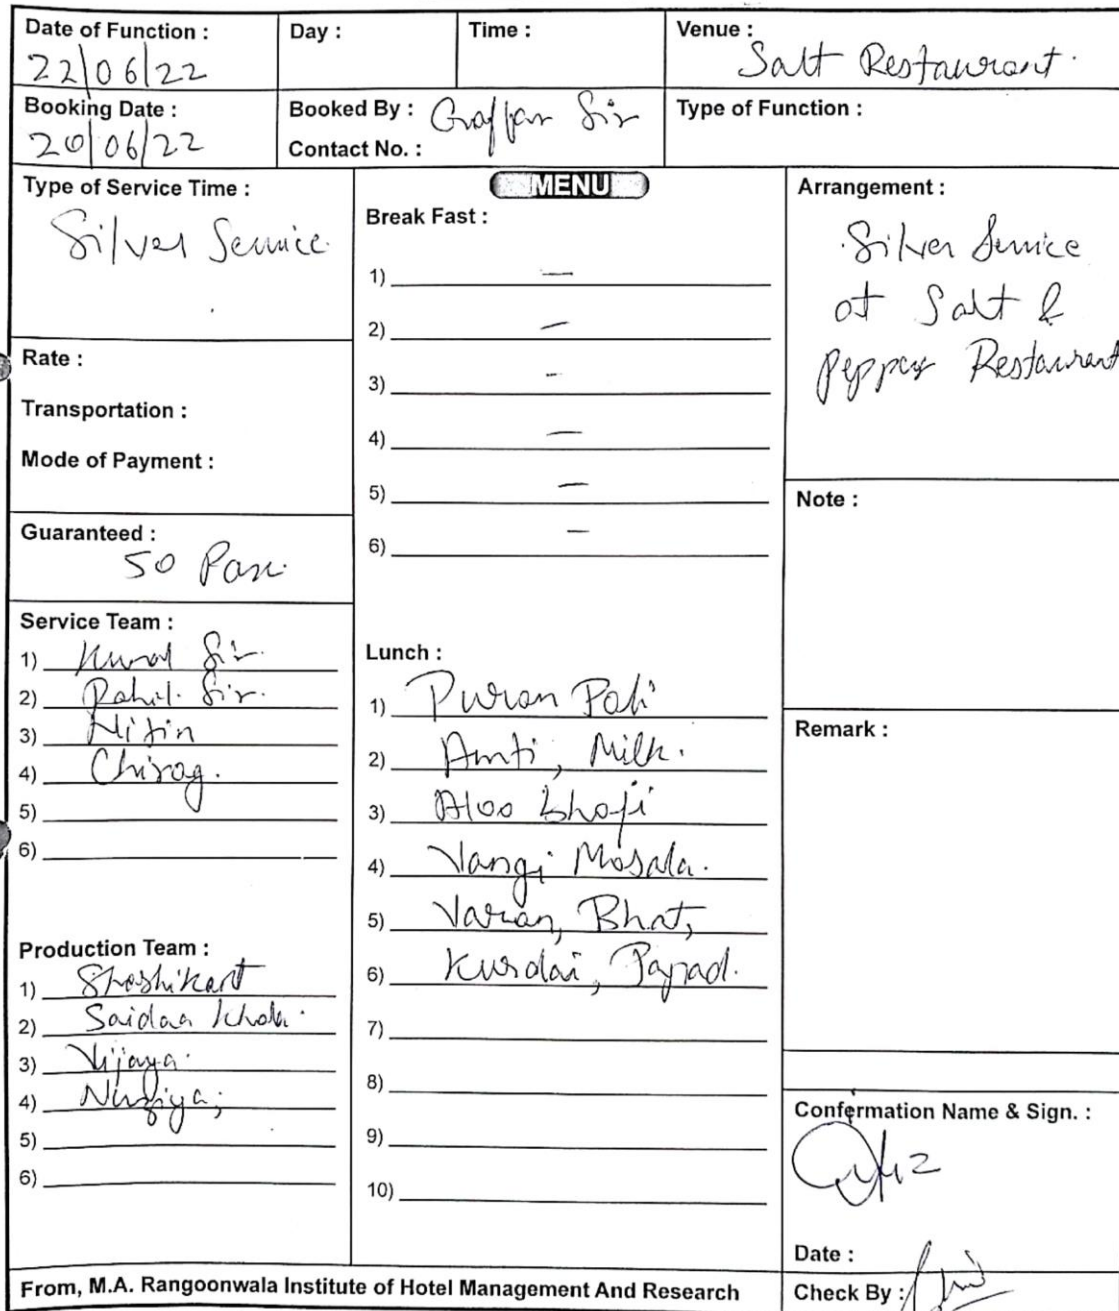 Date of Function :
22/06/22
Day :
Time :
Venue :
Salt Restaurant.
Booking Date :
20/06/22
Booked By : Gaffar Sir
Contact No. :
Type of Function :
Type of Service Time :
Silver Service.
Rate :
Transportation :
Mode of Payment :
Guaranteed :
50 Pax.
Service Team :
1) Kunal Sir.
2) Rahil. Sir.
3) Nitin
4) Chirag.
5)
6)
Production Team :
1) Shashikant
2) Saidaa
3) Vijaya.
4)
5)
6)
MENU
Break Fast :
1) —
2) —
3) —
4) —
5) —
6) —
Lunch :
1) Puran Poli
2) Amti, Milk.
3) Aloo bhaji
4) Vangi Masala.
5) Varan, Bhat,
6) Kurdai, Papad.
7)
8)
9)
10)
Arrangement :
Silver Service
at Salt &
Peppar Restaurant
Note :
Remark :
Confermation Name & Sign. :
Date :
Check By :
From, M.A. Rangoonwala Institute of Hotel Management And Research